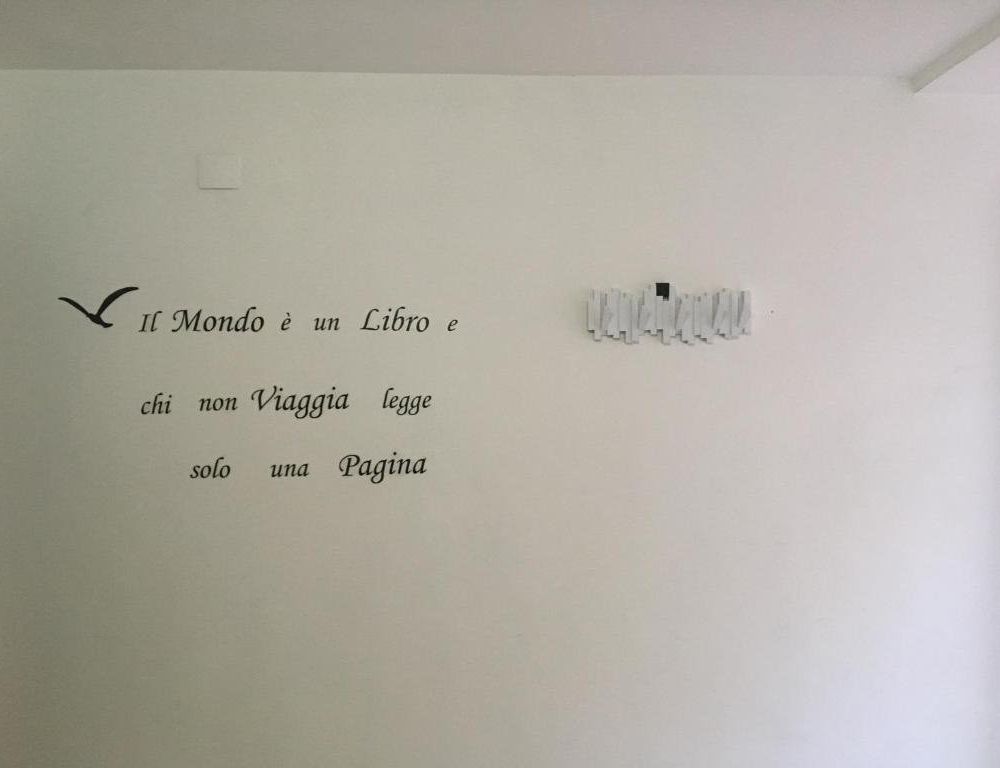 Il Mondo è un Libro e
chi non Viaggia legge
solo una Pagina